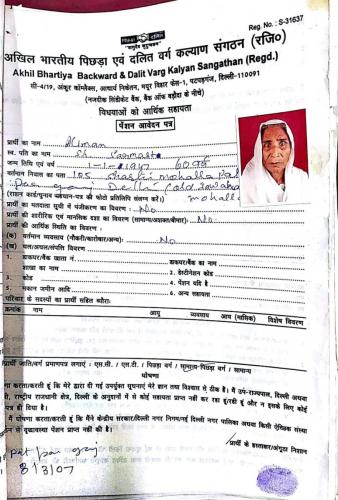 Reg. No. : S-31637
अखिल भारतीय पिछड़ा एवं दलित वर्ग कल्याण संगठन (रजि०)
Akhil Bhartiya Backward & Dalit Varg Kalyan Sangathan (Regd.)
सी-4/19, अंकुर कॉम्प्लैक्स, आचार्य निकेतन, मयूर विहार फेस-1, पटपड़गंज, दिल्ली-110091
(नजदीक सिंडीकेट बैंक, बैंक ऑफ बड़ौदा के नीचे)
विधवाओं को आर्थिक सहायता
पेंशन आवेदन पत्र
प्रार्थी का नाम
स्व. पति का नाम Sh.
जन्म तिथि एवं वर्ष 1-1-1947 60 वर्ष
वर्तमान निवास का पता 105 mohalla
ganj Delhi
(राशन कार्ड/चुनाव पहचान-पत्र की फोटो प्रतिलिपि संलग्न करें।) mohalla
प्रार्थी का मतदाता सूची में पंजीकरण का विवरण : No
प्रार्थी की शारीरिक एवं मानसिक दशा का विवरण (सामान्य/अशक्त/बीमार): No
प्रार्थी की आर्थिक स्थिति का विवरण :
(क) वर्तमान व्यवसाय (नौकरी/कारोबार/अन्य): No
(ख) चल/अचल/संपत्ति विवरण
1. डाकघर/बैंक खाता नं. डाकघर/बैंक का नाम
शाखा का नाम 2. डेस्टीनेशन कोड
3. कोड 4. पेंशन यदि है
5. मकान जमीन आदि 6. अन्य सहायता
परिवार के सदस्यों का प्रार्थी सहित ब्यौरा:
क्रमांक नाम आयु व्यवसाय आय (मासिक) विशेष विवरण
प्रार्थी जाति/वर्ग प्रमाणपत्र लगाएं - एस.सी. / एस.टी. / पिछड़ा वर्ग / सामान्य-पिछड़ा वर्ग / सामान्य
घोषणा
घोषणा करता/करती हूं कि मेरे द्वारा दी गई उपर्युक्त सूचनाएं मेरे ज्ञान तथा विश्वास से ठीक है। मैं उप-राज्यपाल, दिल्ली अथवा
राष्ट्रीय राजधानी क्षेत्र, दिल्ली के अनुदानों में से कोई सहायता प्राप्त नहीं कर रहा हूं/रही हूं और न इसके लिए कोई
पत्र ही दिया है।
मैं घोषणा करता/करती हूं कि मैंने केन्द्रीय सरकार/दिल्ली नगर निगम/नई दिल्ली नगर पालिका अथवा किसी ऐच्छिक संस्था
से वृद्धावस्था पेंशन प्राप्त नहीं की है।
प्रार्थी के हस्ताक्षर/अंगूठा निशान
8/3/07